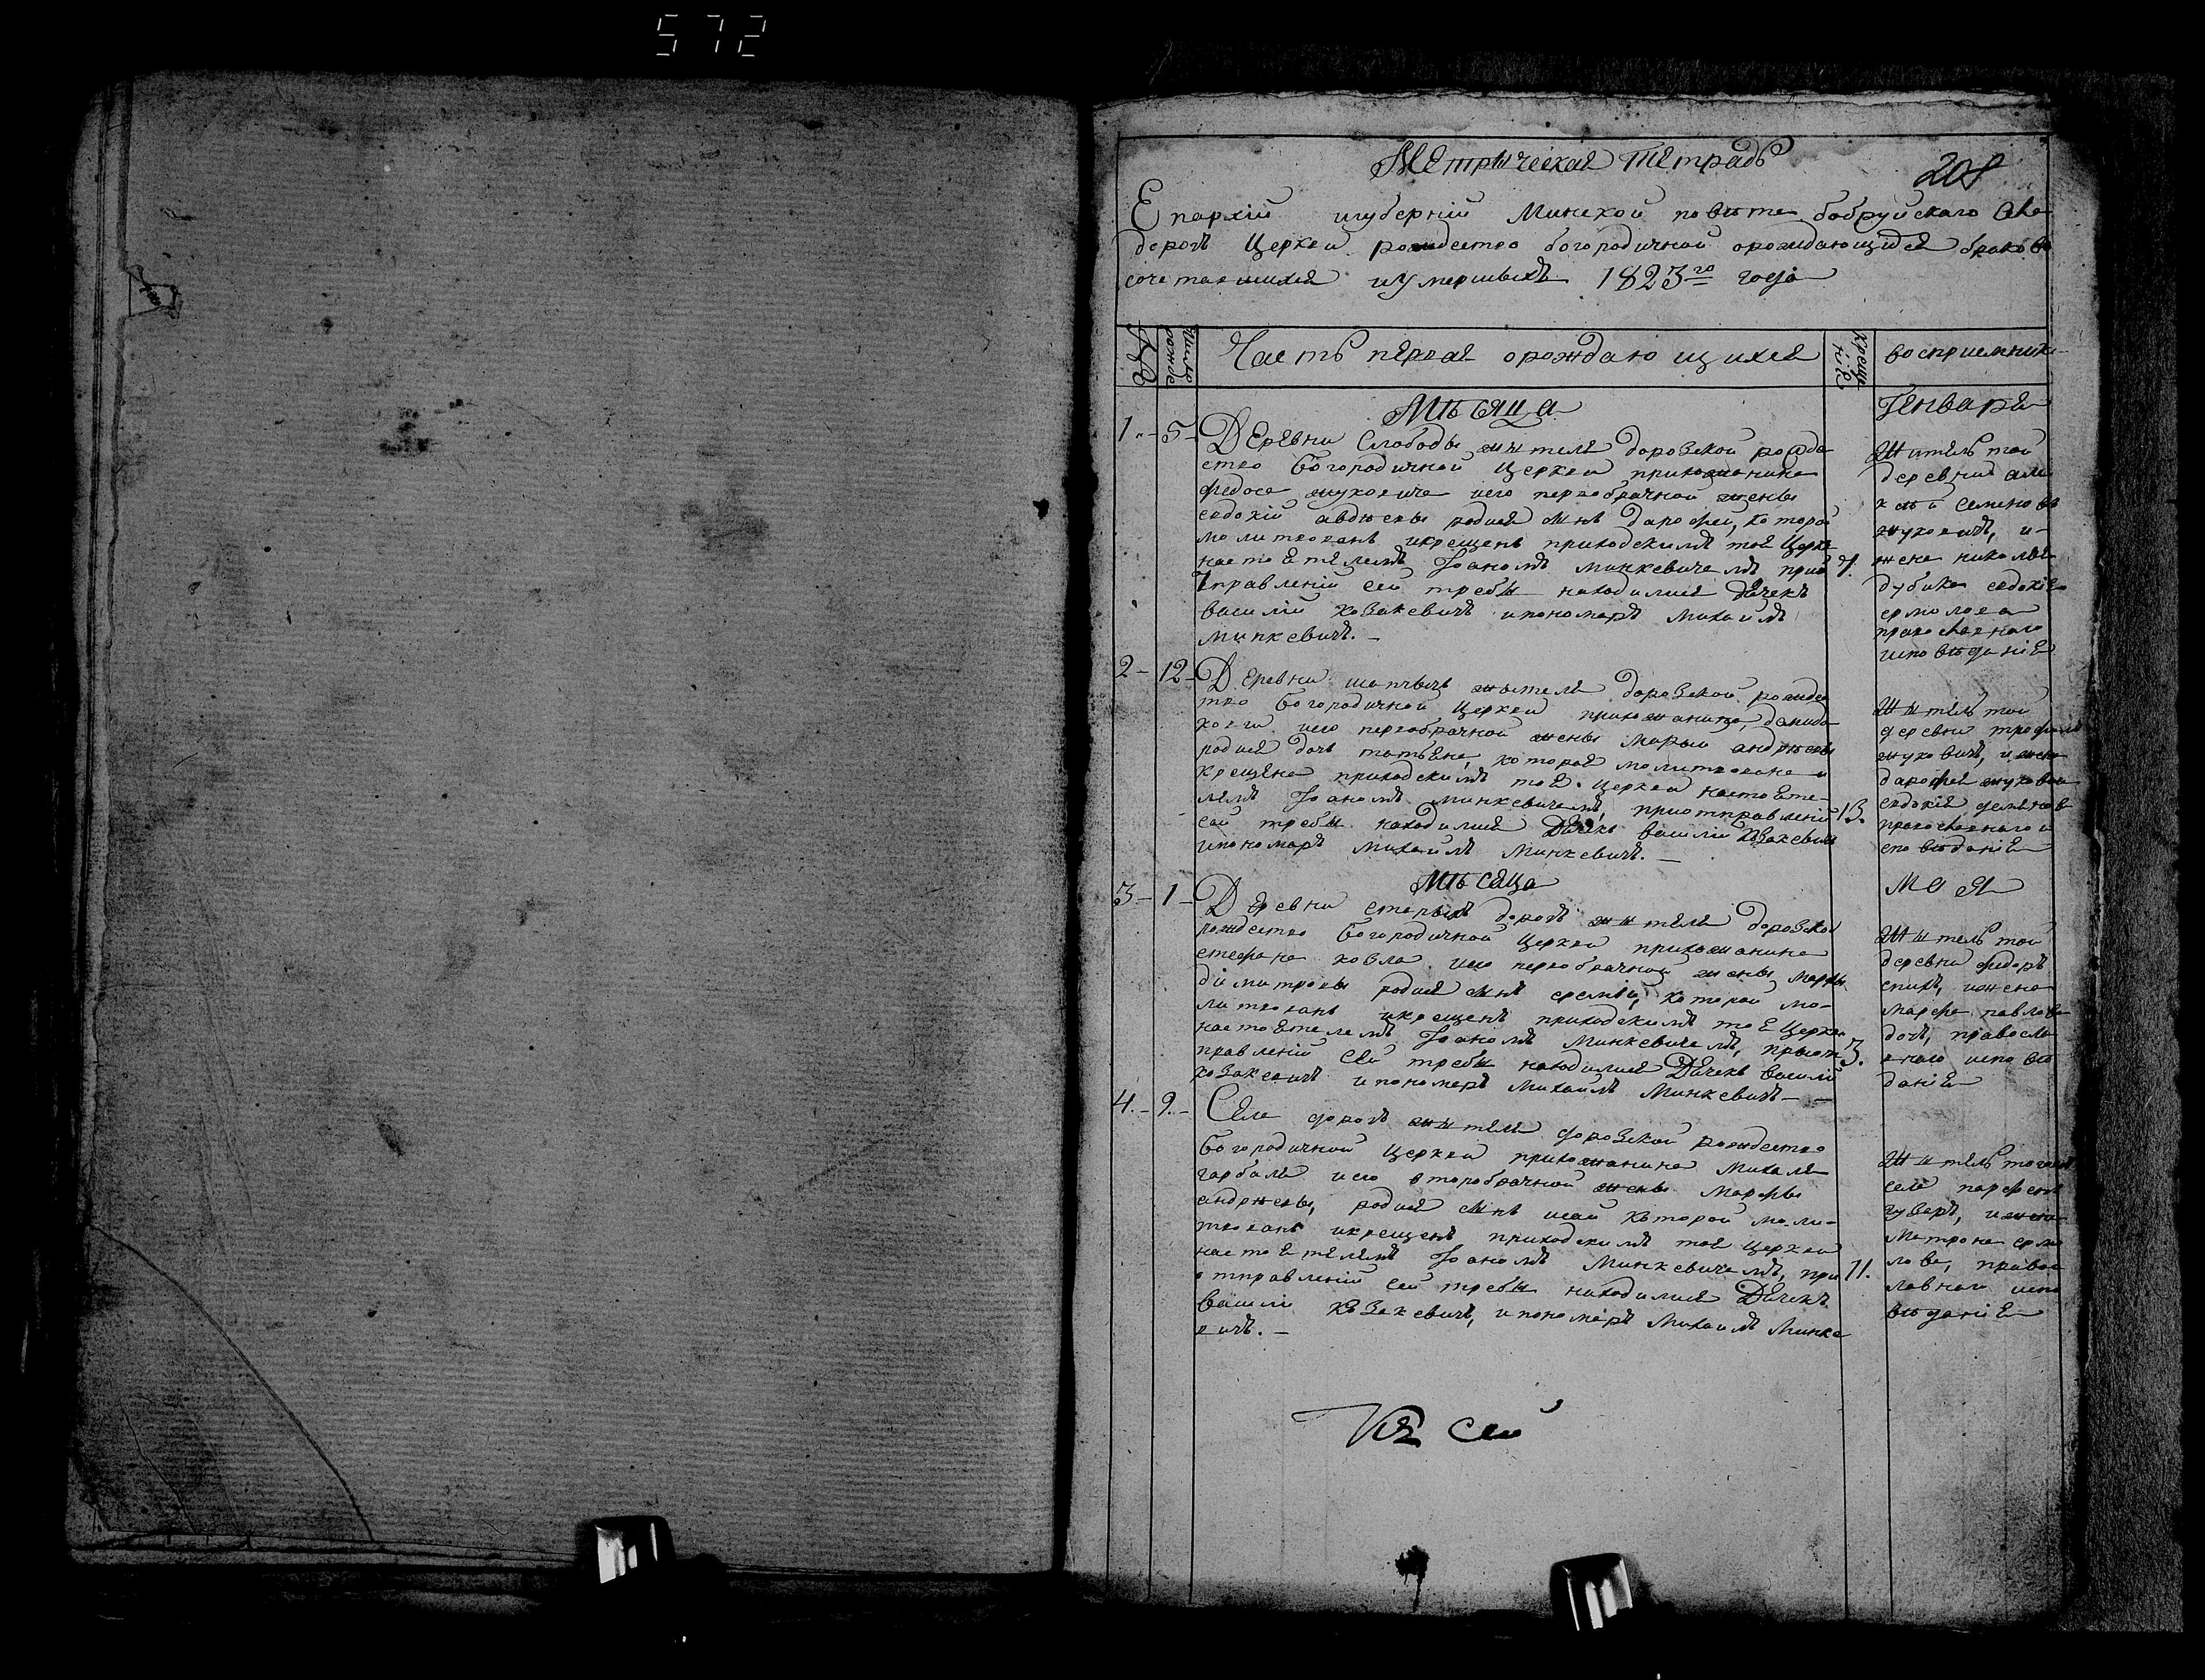 572
Метрическая тетрадь
208
Епархiи игубернiи Минской повѣта бобруйскаго
дорогъ Церкви рождество богородичной орождающихся браковъ
сочетавшихся иумершыхъ 1823го года
Число рожде
Часть первая орождающихся
креще нiя
восприемники
Мѣсяца
Генваря
1.-5-
Деревни Слободы жителя даровской рожде
ство богородичной Церкви прихожанина
федоса жуковича иего первобрачной жены
евдокiи авдѣевы родися сынъ дарофей, которой
молитвованъ икрещенъ приходскимъ тоя Церкви
настоятелемъ Iоаномъ Минкевичемъ прио 7.
тправленiи сей требы находилися Дячекъ
василiй козакевичъ ипономаръ Михаилъ
минкевичъ.-
житель той
деревни але
ксѣй Семеновъ
жуковичъ, и-
жена николая
дубика евдокiя
ермолова
православнаго
исповѣданiя
2-12-
Деревни жытеля даровской рождес
тво богородичной Церкви прихожанина, данила
иего первобрачной жены Марыи андрѣевы
родися дочь татьяна, которая молитвована и
крещена приходскимъ тоя Церкви настояте-
лемъ Iоаномъ минкевичемъ, приотправленiи 13.
сей требы находилися Дячекъ василiй козакевичъ
ипономаръ Михаилъ Минкевичъ.-
жытель той
деревни трофимъ
жуковичъ, ижена
дарофея жуковича
евдокiя
православнаго и
споведанiя
Мѣсяца
Мая
3-1-
Деревни старыхъ дорогъ жытеля даровской
рождество богородичной Церкви прихожанина
стефана козла иего первобрачной жены марфы
димитровы родися сынъ еремѣй, которой мо-
литвованъ икрещенъ приходскимъ тоя Церкви
настоятелемъ Iоаномъ Минкевичемъ, приот 3.
правленiи сей требы находилися Дячекъ василiй
козакевичъ ипономаръ Михаилъ Минкевичъ-
жытель той
деревни федоръ
ижена
марфа павлова
православ
енаго исповѣ
данiя
4.-9.-
Села дорогъ жытеля даровской рождество
богородичной Церкви прихожанина Михаля
гарбаля иего второбрачной жены Марфы
андрѣевы, родися сынъ исаи которой моли-
твованъ икрещенъ приходскимъ тоя Церкви
настоятелемъ Iоаномъ Минкевичемъ, при 11.
отправленiи сей требы находилися Дячекъ
василi козакевичъ, ипономаръ Михаилъ Минке
вичъ.-
жытель тогожъ
села парфенъ
ижена
Матрона ермо
лова, правос
лавнаго испо
вѣданiя
сей